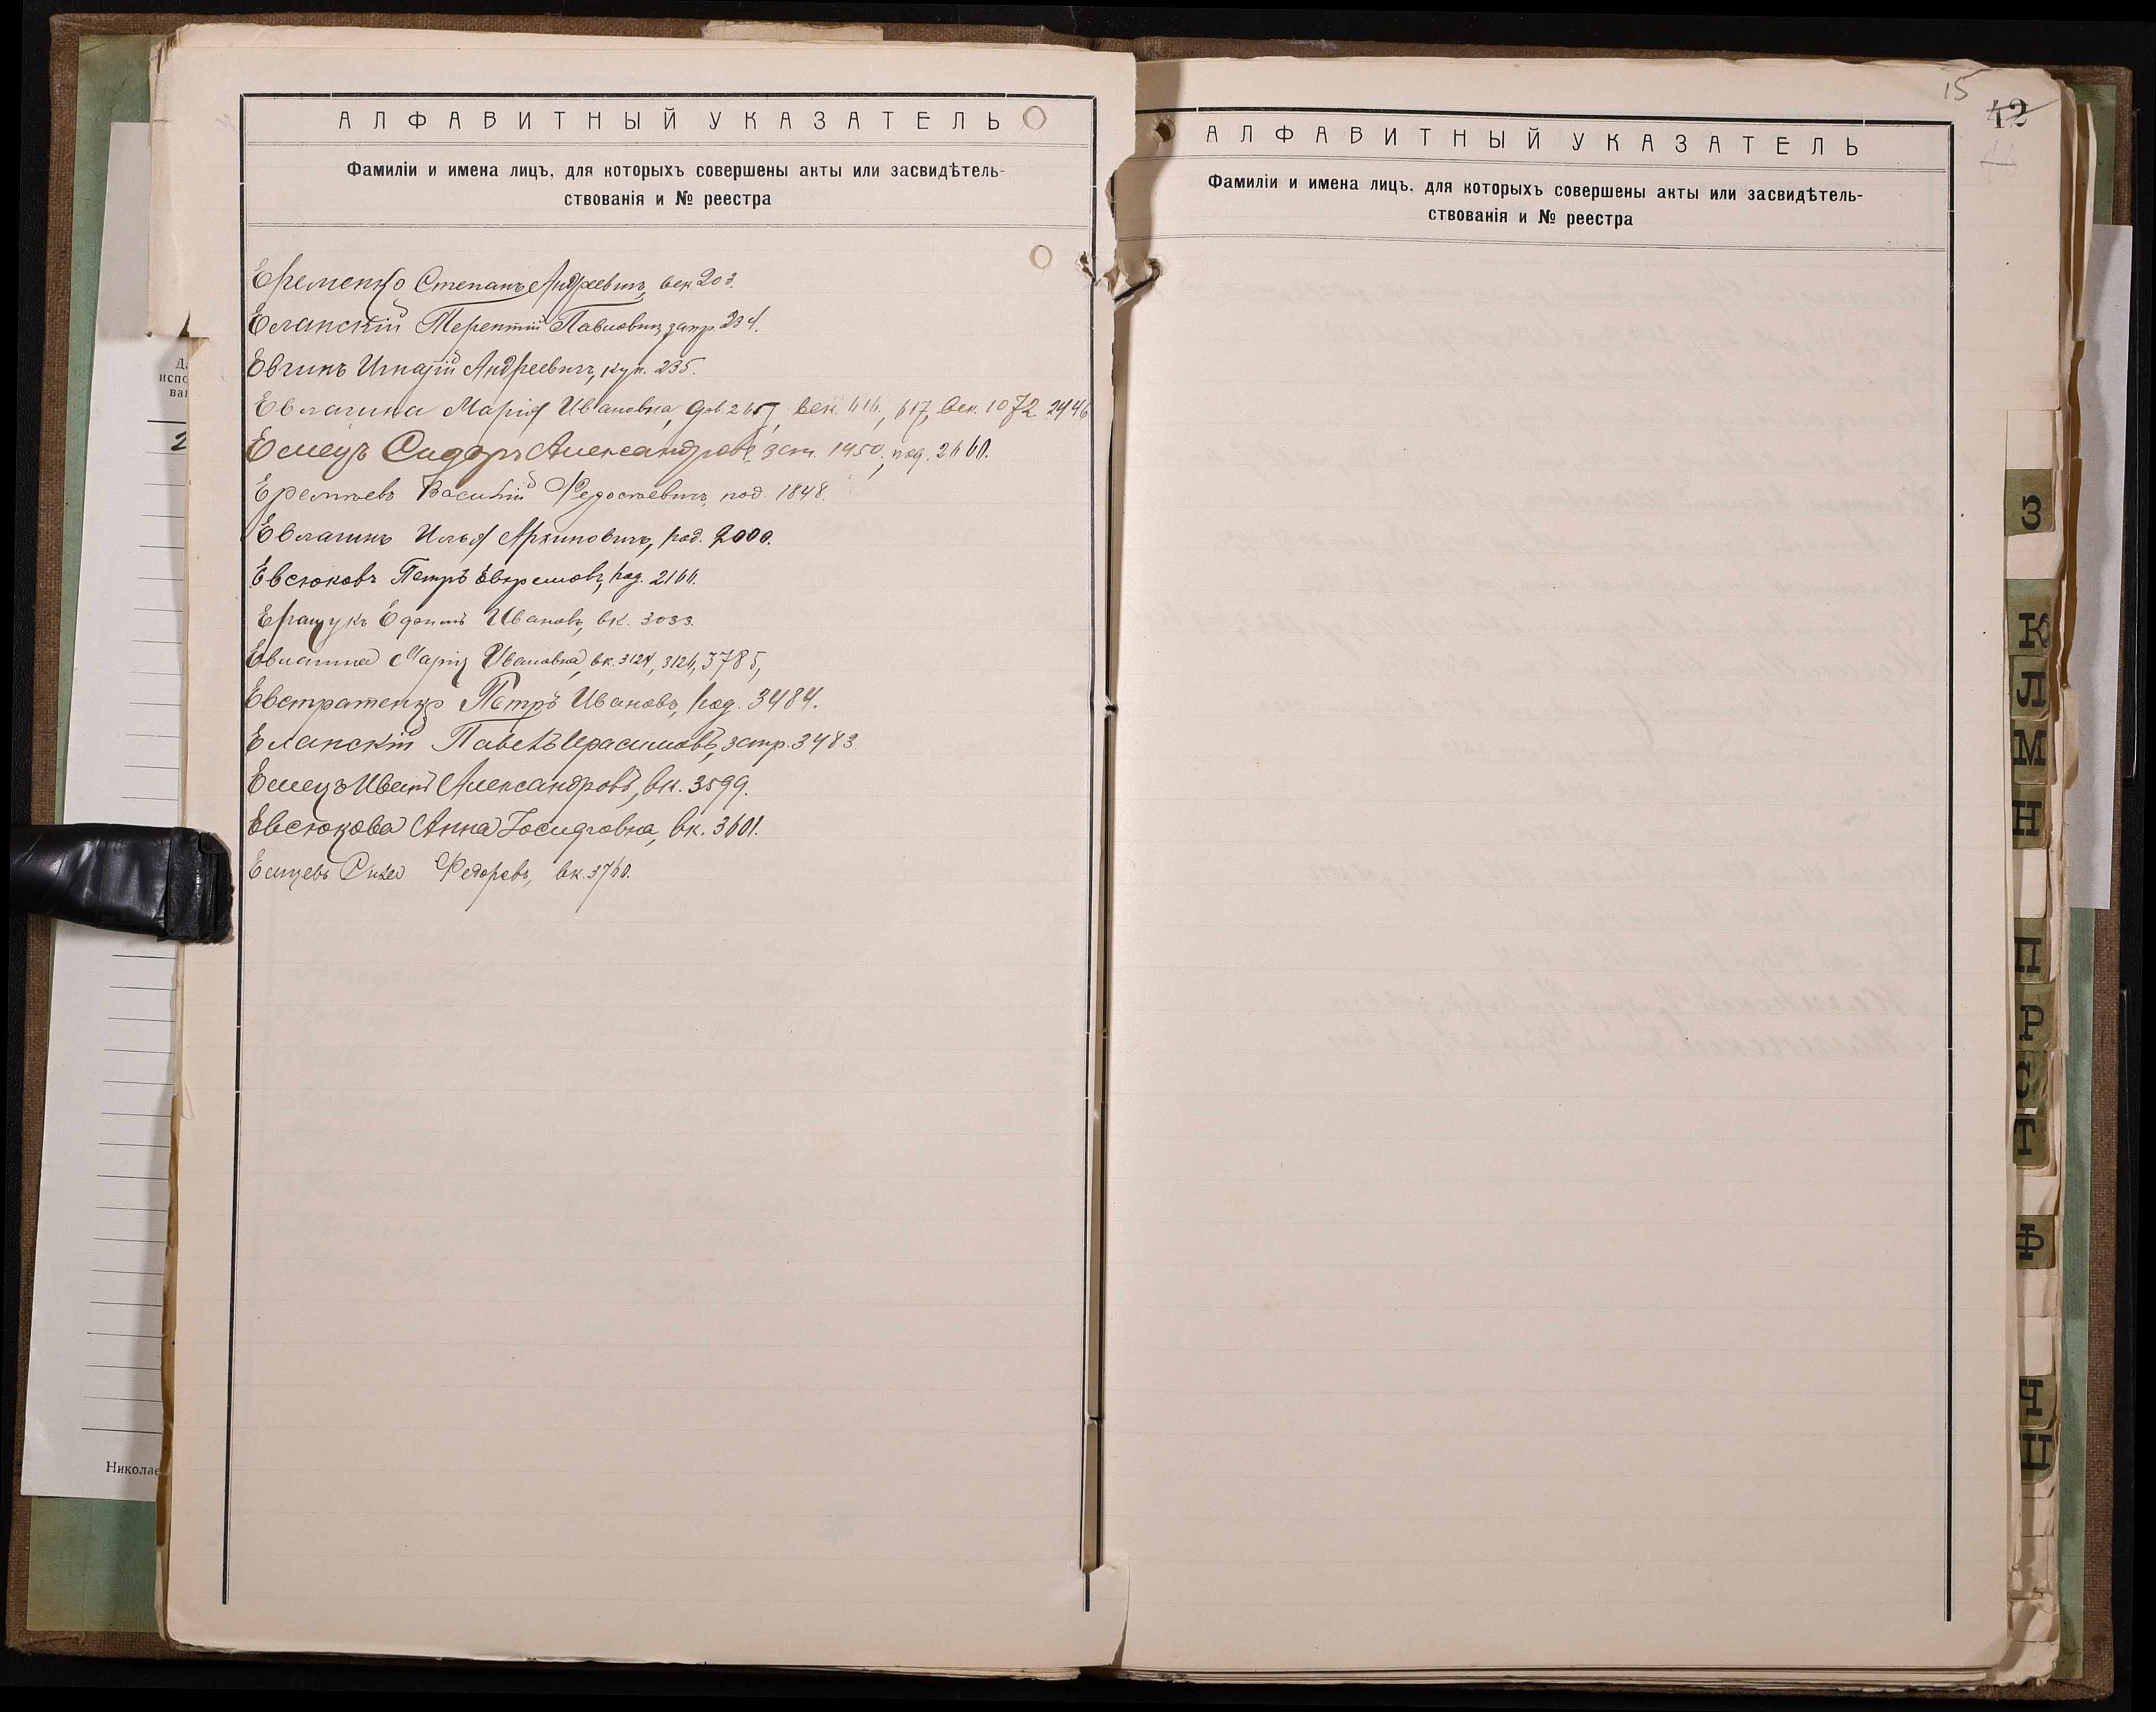 АЛФАВИТНЫЙ УКАЗАТЕЛЬ
Фамиліи и имена лицъ, для которыхъ совершены акты или засвидѣтель-
ствованія и № реестра
Еременко Степанъ Андреевичъ, век. 203.
Еланскій Терентій Павловичъ, запр. 234.
Евчинъ Игнатій Андреевичъ, куп. 235.
Евлагина Марія Ивановна, дов. век. 616, 617, век. 1072 2946
Емецъ Сидоръ Александровъ, 1950, под. 2660.
Василій под. 1848.
Евлагинъ Илья Архиповичъ, под. 2000.
Евсюковъ Петръ Евфремовъ, под. 2166.
Еращукъ Ефимъ Ивановъ, вк. 3033.
Евлагина Марія Ивановна, вк. 3124, 3126, 3785,
Евстратенко Петръ Ивановъ, под. 3484.
Еланскій Павелъ Герасимовъ, 3483.
Емецъ Иванъ Александровъ, вк. 3599.
Евсюкова Анна Іосифовна, вк. 3601.
Федоровъ, вк. 3760.
15
42
АЛФАВИТНЫЙ УКАЗАТЕЛЬ
Фамиліи и имена лицъ, для которыхъ совершены акты или засвидѣтель-
ствованія и № реестра
З
К
Л
М
Н
П
Р
С
Т
Ф
Ч
испо
ва
2
Николае